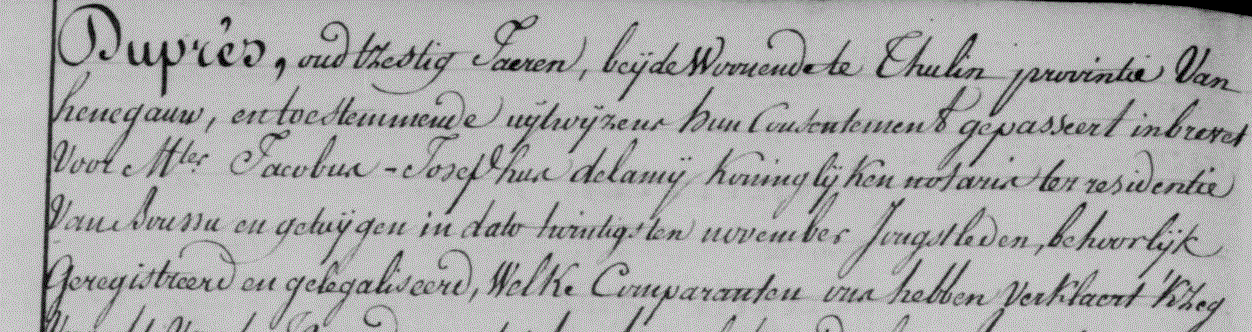 Duprês, oud tzestig Jaeren, beÿde Woonende te Thulin provintie Van
henegauw, en toestemmende uÿtwÿzens hun Consentement gepasseert in brevet
Voor Mter Jacobus - Josephus delamÿ Koninglÿken notaris ter residentie
Van Boussu en getuÿgen in dato twintigsten november Jongstleden, behoorlÿk
Geregistreerd en gelegaliseerd, Welke Comparanten ons hebben Verklaert 'K zeg